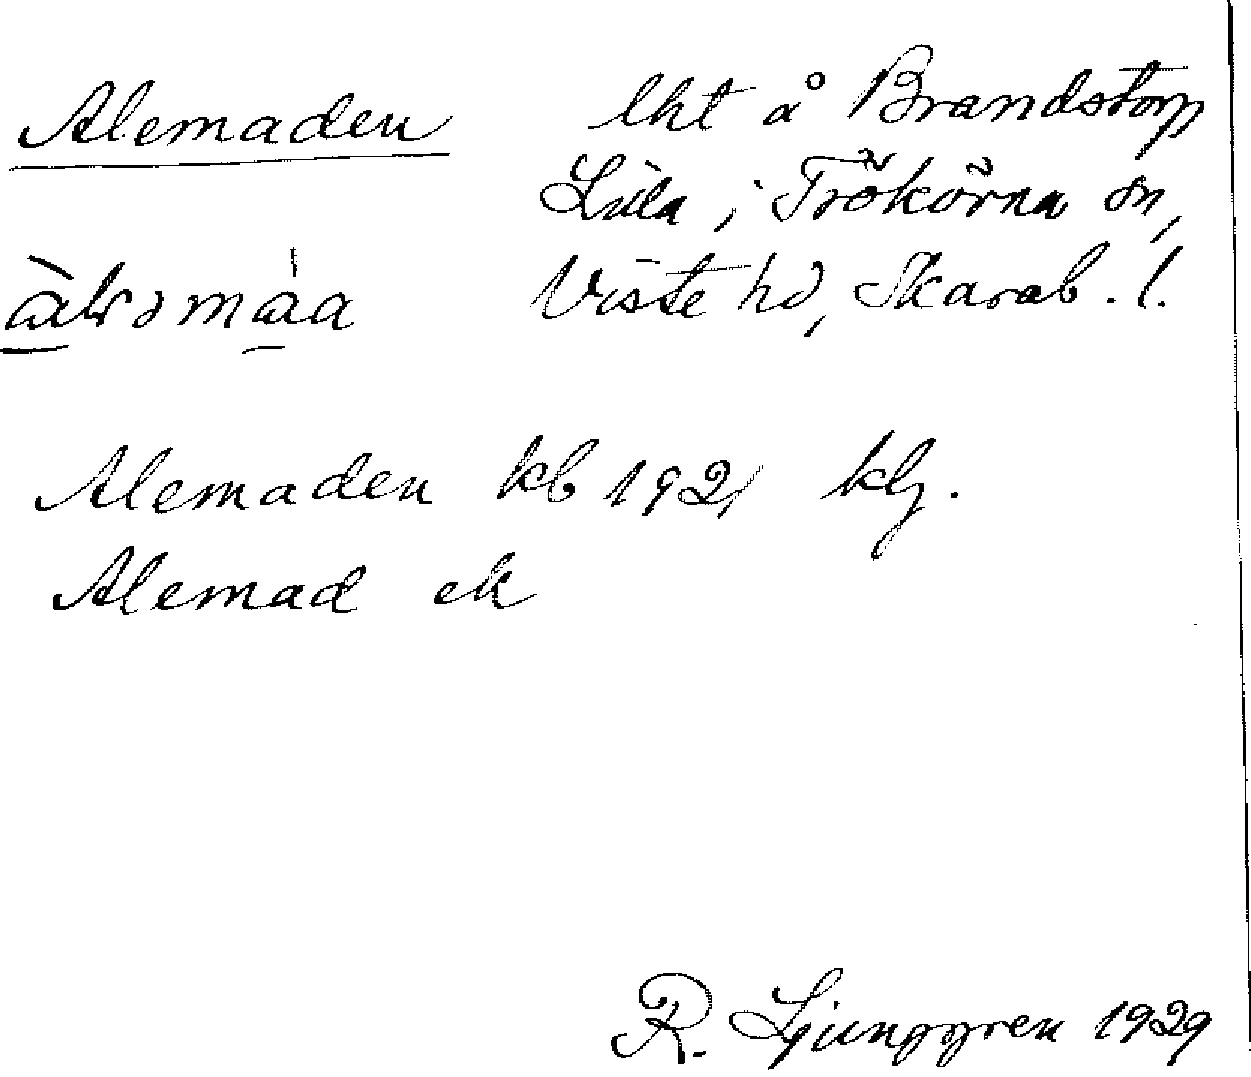 Alemaden lht å Brandstorp
Lilla, i Trökörna sn,
Viste hd, Skarab. l.
Alemaden kb 1921 klg.
Alemad ek
R. Ljunggren 1929